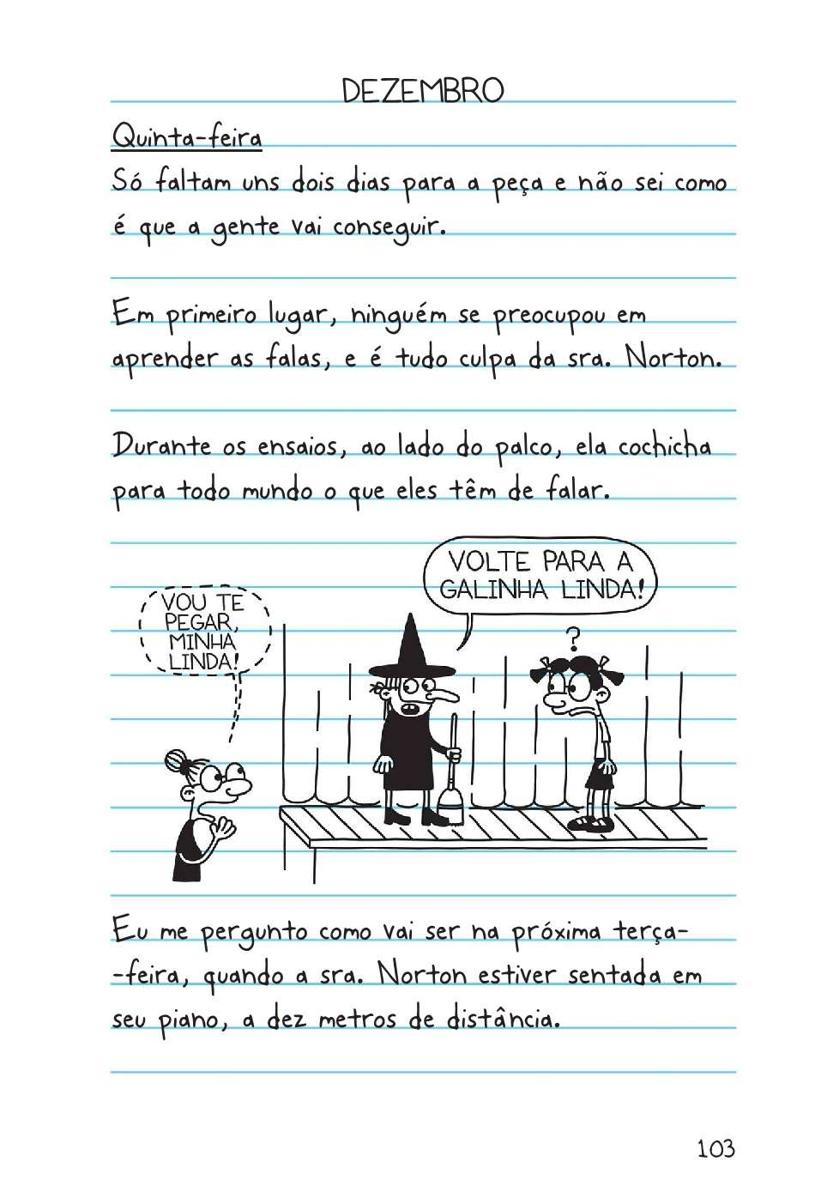 DEZEMBRO
Quinta-feira
Só faltam uns dois dias para a peça e não sei como
é que a gente vai conseguir.
Em primeiro lugar, ninguém se preocupou em
aprender as falas, e é tudo culpa da sra. Norton.
Durante os ensaios, ao lado do palco, ela cochicha
para todo mundo o que eles têm de falar.
VOU TE
PEGAR,
MINHA
LINDA!
VOLTE PARA A
GALINHA LINDA!
?
Eu me pergunto como vai ser na próxima terça-
-feira, quando a sra. Norton estiver sentada em
seu piano, a dez metros de distância.
103